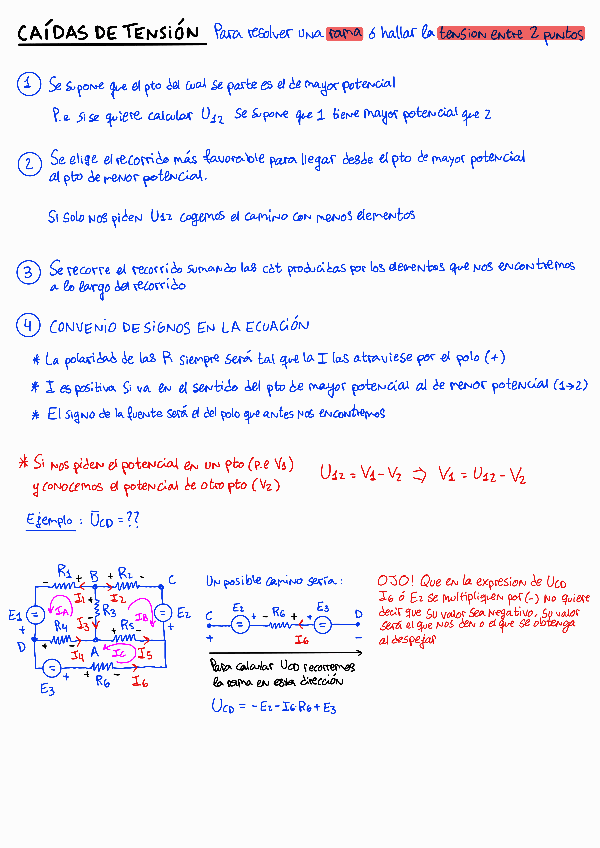 CAÍDAS DE TENSIÓN Para resolver una rama ó hallar la tension entre 2 puntos
1 Se supone que el pto del cual se parte es el de mayor potencial
P.e si se quiere calcular U12 se supone que 1 tiene mayor potencial que 2
2 Se elige el recorrido más favorable para llegar desde el pto de mayor potencial
al pto de menor potencial.
Si solo nos piden U12 cogemos el camino con menos elementos
3 Se recorre el recorrido sumando las cdt producidas por los elementos que nos encontremos
a lo largo del recorrido
4 CONVENIO DE SIGNOS EN LA ECUACIÓN
* La polaridad de las R siempre será tal que la I las atraviese por el polo (+)
* I es positiva si va en el sentido del pto de mayor potencial al de menor potencial (1→2)
* El signo de la fuente será el del polo que antes nos encontremos
* Si nos piden el potencial en un pto (p.e V1)
y conocemos el potencial de otro pto (V2)
U12 = V1 - V2 ⇒ V1 = U12 - V2
Ejemplo : UCD = ??
- R1 + B + R2 - C
I1 I2
E1 + IA + R3 - I3 IB E2 +
D R4 - + A + R5 -
I4 IC I5
E3 + + R6 - I6
Un posible camino sería:
C E2 + - R6 + E3 D
+ I6 -
Para calcular UCD recorremos
la rama en esta dirección
UCD = -E2 - I6·R6 + E3
OJO! Que en la expresion de UCD
I6 ó E2 se multipliquen por (-) no quiere
decir que su valor sea negativo. Su valor
será el que nos den o el que se obtenga
al despejar